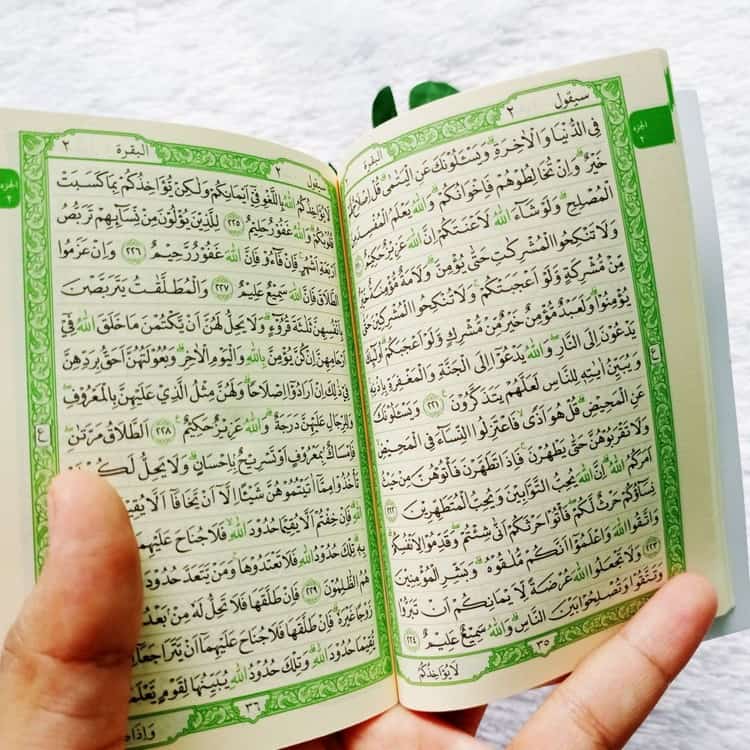 سيقول ٢
البقرة
الجزء
٢
فِي الدُّنْيَا وَالْاٰخِرَةِۗ وَيَسْـَٔلُوْنَكَ عَنِ الْيَتٰمٰىۗ قُلْ اِصْلَاحٌ
خَيْرٌۗ وَاِنْ تُخَالِطُوْهُمْ فَاِخْوَانُكُمْۗ وَاللّٰهُ يَعْلَمُ الْمُفْسِدَ مِنَ
الْمُصْلِحِۗ وَلَوْ شَاۤءَ اللّٰهُ لَاَعْنَتَكُمْ اِنَّ اللّٰهَ عَزِيْزٌ حَكِيْمٌ
وَلَا تَنْكِحُوا الْمُشْرِكٰتِ حَتّٰى يُؤْمِنَّۗ وَلَاَمَةٌ مُّؤْمِنَةٌ خَيْرٌ
مِّنْ مُّشْرِكَةٍ وَّلَوْ اَعْجَبَتْكُمْۚ وَلَا تُنْكِحُوا الْمُشْرِكِيْنَ حَتّٰى
يُؤْمِنُوْاۗ وَلَعَبْدٌ مُّؤْمِنٌ خَيْرٌ مِّنْ مُّشْرِكٍ وَّلَوْ اَعْجَبَكُمْۗ اُولٰۤىِٕكَ
يَدْعُوْنَ اِلَى النَّارِۖ وَاللّٰهُ يَدْعُوْٓا اِلَى الْجَنَّةِ وَالْمَغْفِرَةِ بِاِذْنِهٖۚ
وَيُبَيِّنُ اٰيٰتِهٖ لِلنَّاسِ لَعَلَّهُمْ يَتَذَكَّرُوْنَ ٢٢١ وَيَسْـَٔلُوْنَكَ
عَنِ الْمَحِيْضِۗ قُلْ هُوَ اَذًىۙ فَاعْتَزِلُوا النِّسَاۤءَ فِى الْمَحِيْضِۙ
وَلَا تَقْرَبُوْهُنَّ حَتّٰى يَطْهُرْنَۚ فَاِذَا تَطَهَّرْنَ فَأْتُوْهُنَّ مِنْ حَيْثُ
اَمَرَكُمُ اللّٰهُۗ اِنَّ اللّٰهَ يُحِبُّ التَّوَّابِيْنَ وَيُحِبُّ الْمُتَطَهِّرِيْنَ ٢٢٢
نِسَاۤؤُكُمْ حَرْثٌ لَّكُمْۖ فَأْتُوْا حَرْثَكُمْ اَنّٰى شِئْتُمْۖ وَقَدِّمُوْا لِاَنْفُسِكُمْۗ
وَاتَّقُوا اللّٰهَ وَاعْلَمُوْٓا اَنَّكُمْ مُّلٰقُوْهُۗ وَبَشِّرِ الْمُؤْمِنِيْنَ ٢٢٣
وَلَا تَجْعَلُوا اللّٰهَ عُرْضَةً لِّاَيْمَانِكُمْ اَنْ تَبَرُّوْا
وَتَتَّقُوْا وَتُصْلِحُوْا بَيْنَ النَّاسِۗ وَاللّٰهُ سَمِيْعٌ عَلِيْمٌ ٢٢٤
٣٥
لَا يُؤَاخِذُكُمُ
سيقول ٢
البقرة ٢
الجزء
٢
لَا يُؤَاخِذُكُمُ اللّٰهُ بِاللَّغْوِ فِيْٓ اَيْمَانِكُمْ وَلٰكِنْ يُّؤَاخِذُكُمْ بِمَا كَسَبَتْ
قُلُوْبُكُمْۗ وَاللّٰهُ غَفُوْرٌ حَلِيْمٌ ٢٢٥ لِلَّذِيْنَ يُؤْلُوْنَ مِنْ نِّسَاۤىِٕهِمْ تَرَبُّصُ
اَرْبَعَةِ اَشْهُرٍۚ فَاِنْ فَاۤءُوْ فَاِنَّ اللّٰهَ غَفُوْرٌ رَّحِيْمٌ ٢٢٦ وَاِنْ عَزَمُوا
الطَّلَاقَ فَاِنَّ اللّٰهَ سَمِيْعٌ عَلِيْمٌ ٢٢٧ وَالْمُطَلَّقٰتُ يَتَرَبَّصْنَ
بِاَنْفُسِهِنَّ ثَلٰثَةَ قُرُوْۤءٍۗ وَلَا يَحِلُّ لَهُنَّ اَنْ يَّكْتُمْنَ مَا خَلَقَ اللّٰهُ فِيْٓ
اَرْحَامِهِنَّ اِنْ كُنَّ يُؤْمِنَّ بِاللّٰهِ وَالْيَوْمِ الْاٰخِرِۗ وَبُعُوْلَتُهُنَّ اَحَقُّ بِرَدِّهِنَّ
فِيْ ذٰلِكَ اِنْ اَرَادُوْٓا اِصْلَاحًاۗ وَلَهُنَّ مِثْلُ الَّذِيْ عَلَيْهِنَّ بِالْمَعْرُوْفِۖ
وَلِلرِّجَالِ عَلَيْهِنَّ دَرَجَةٌۗ وَاللّٰهُ عَزِيْزٌ حَكِيْمٌ ٢٢٨ اَلطَّلَاقُ مَرَّتٰنِۖ
فَاِمْسَاكٌۢ بِمَعْرُوْفٍ اَوْ تَسْرِيْحٌۢ بِاِحْسَانٍۗ وَلَا يَحِلُّ لَكُمْ
تَأْخُذُوْا مِمَّآ اٰتَيْتُمُوْهُنَّ شَيْـًٔا اِلَّآ اَنْ يَّخَافَآ اَلَّا يُقِيْمَا
اللّٰهِۗ فَاِنْ خِفْتُمْ اَلَّا يُقِيْمَا حُدُوْدَ اللّٰهِۙ فَلَا جُنَاحَ عَلَيْهِمَا
بِهٖۗ تِلْكَ حُدُوْدُ اللّٰهِ فَلَا تَعْتَدُوْهَاۚ وَمَنْ يَّتَعَدَّ حُدُوْدَ
هُمُ الظّٰلِمُوْنَ ٢٢٩ فَاِنْ طَلَّقَهَا فَلَا تَحِلُّ لَهٗ مِنْۢ بَعْدُ
زَوْجًا غَيْرَهٗۗ فَاِنْ طَلَّقَهَا فَلَا جُنَاحَ عَلَيْهِمَآ اَنْ يَّتَرَاجَعَآ
يُّقِيْمَا حُدُوْدَ اللّٰهِۗ وَتِلْكَ حُدُوْدُ اللّٰهِ يُبَيِّنُهَا لِقَوْمٍ يَّعْلَمُوْنَ
٣٦
وَاِذَا